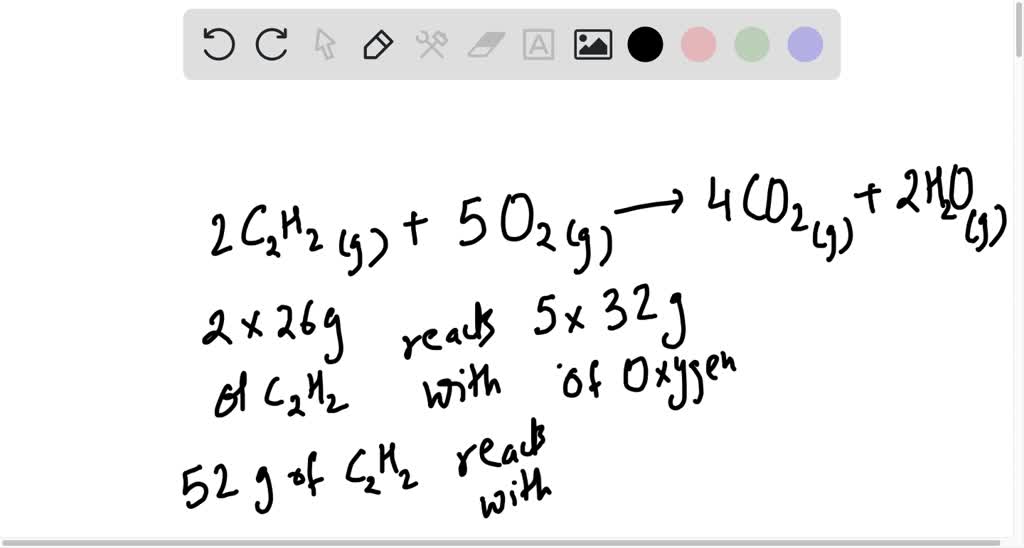 A
2C₂H₂(g) + 5O₂(g) ⟶ 4CO₂(g) + 2H₂O(g)
2 × 26g reacts 5 × 32g
of C₂H₂ with of Oxygen
52 g of C₂H₂ reacts
with